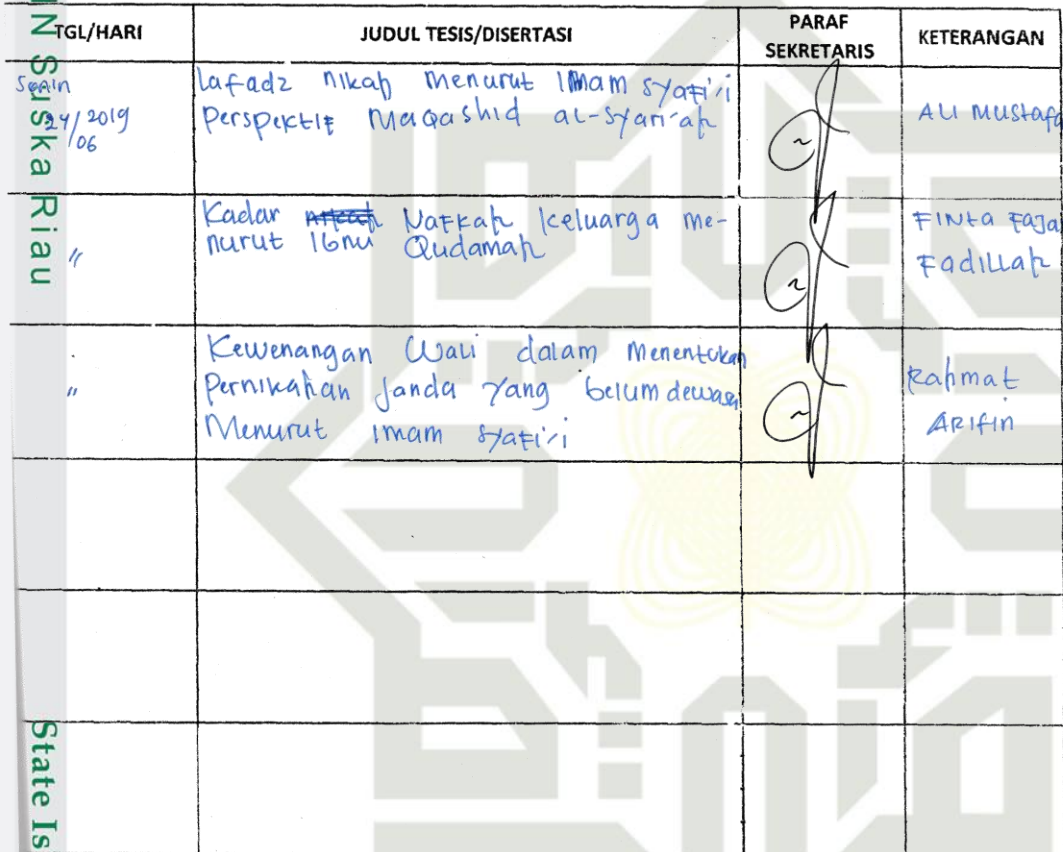 TGL/HARI JUDUL TESIS/DISERTASI PARAF SEKRETARIS KETERANGAN
Senin
24/06 2019
Lafadz nikah menurut Imam syafi'i
Perspektif Maqashid al-syari'ah
Ali Mustafa
"
Kadar nikah Nafkah keluarga me-
nurut Ibnu Qudamah
Finta Faja
Fadillah
"
Kewenangan Wali dalam Menentukan
Pernikahan Janda yang belum dewasa
Menurut imam syafi'i
Rahmat
Arifin
N Suska Riau
State Is